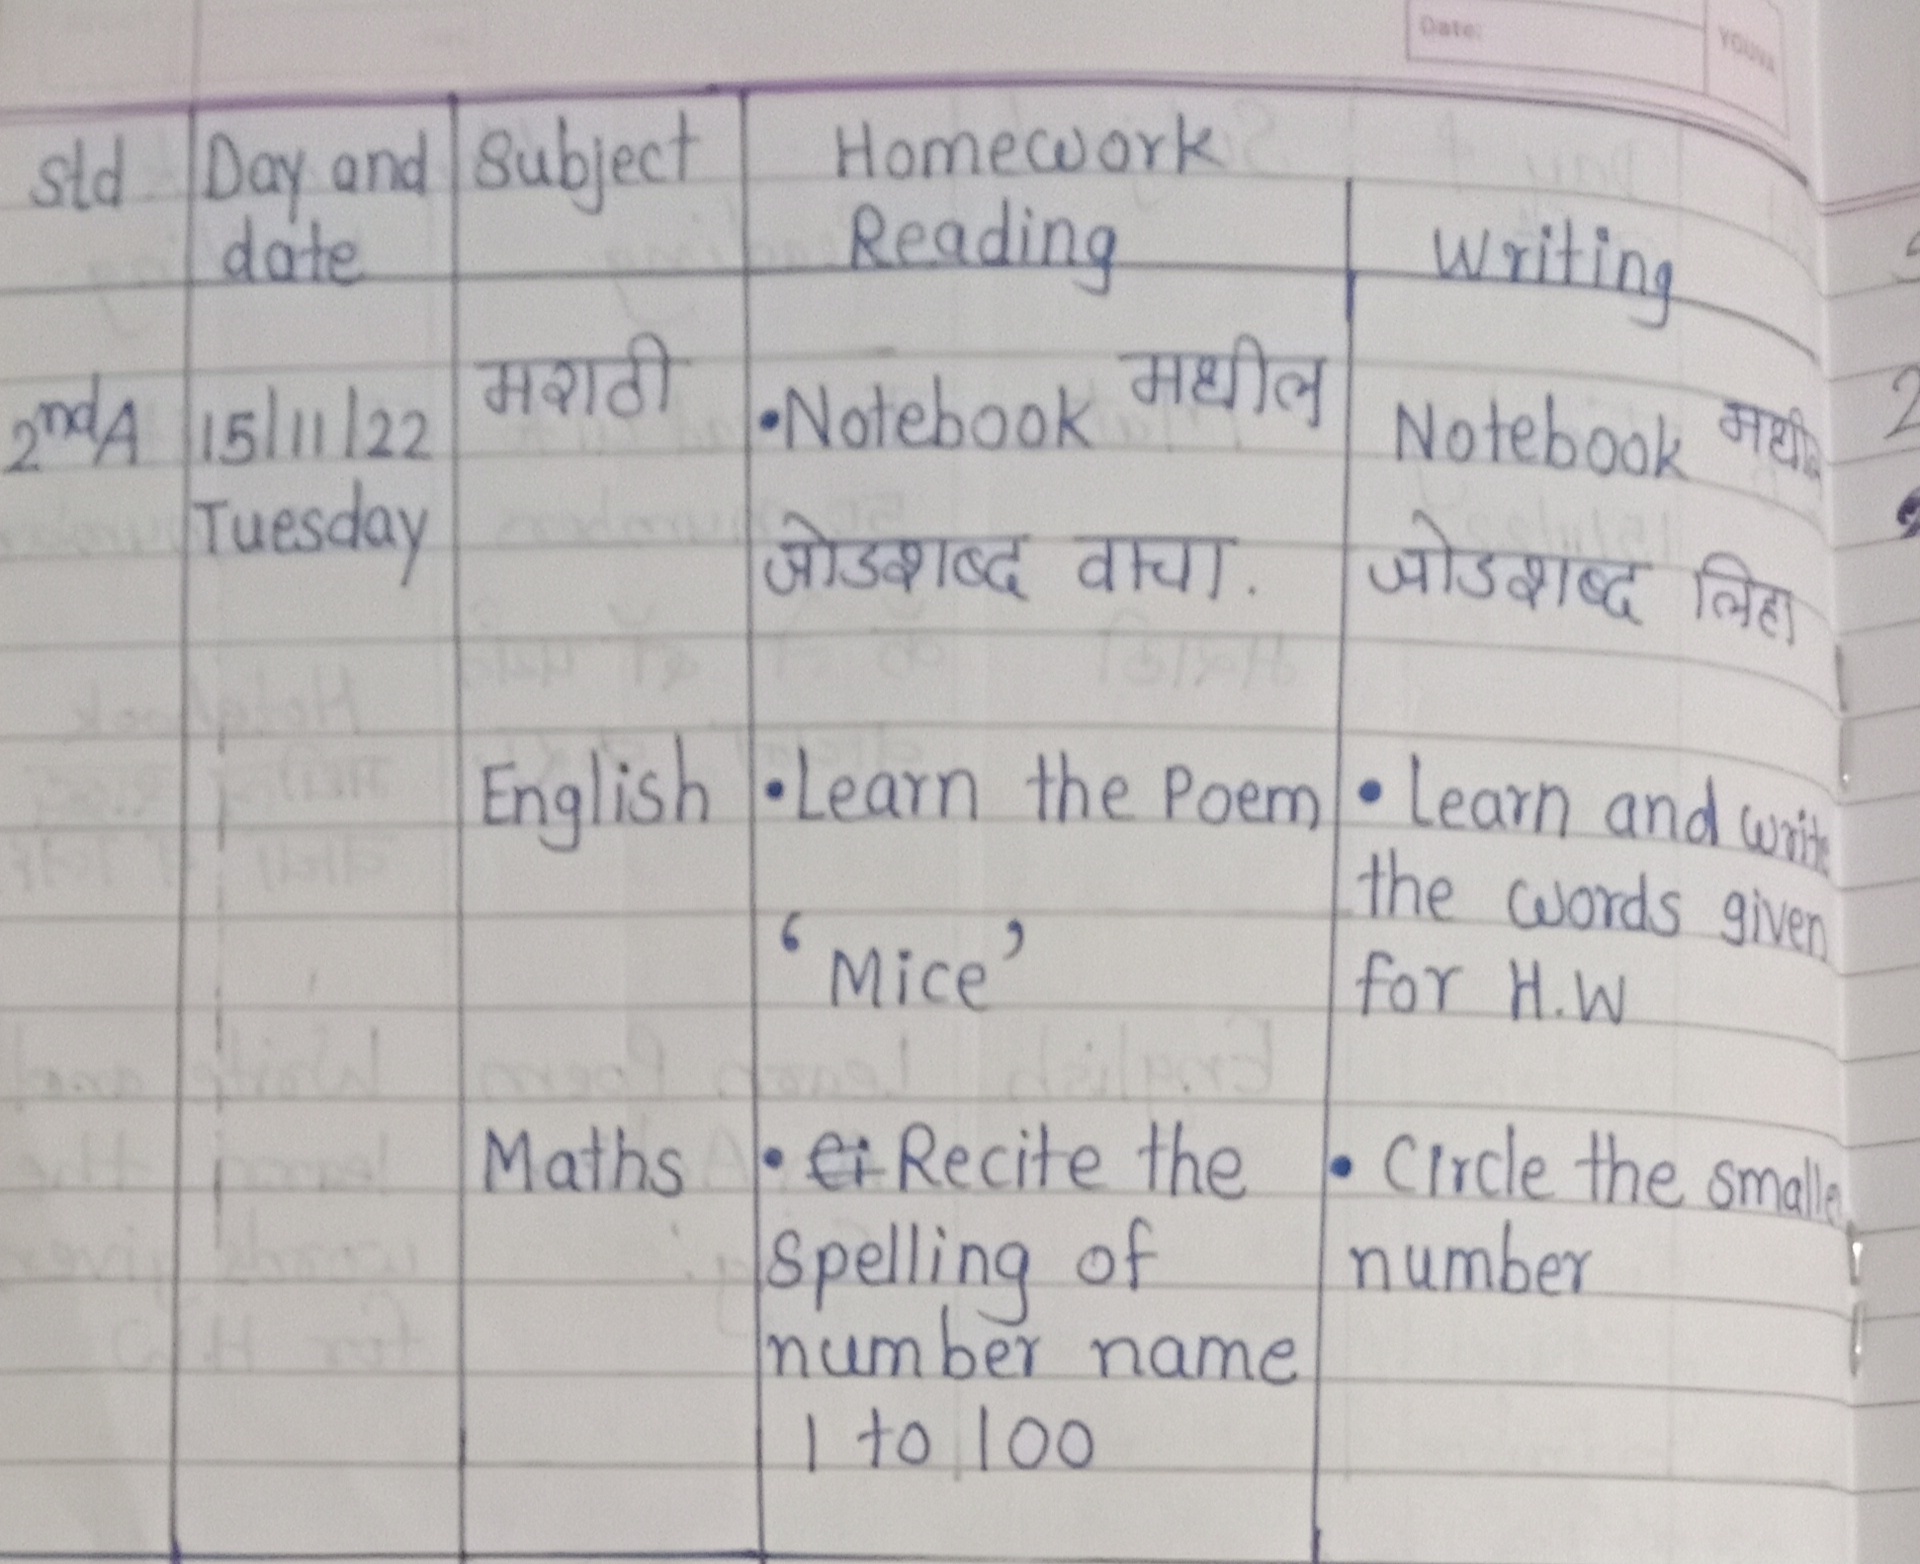 Date:
YOUVA
std Day and date Subject Homework
Reading Writing
2nd A 15/11/22 Tuesday मराठी
•Notebook मधील
जोडशब्द वाचा.
Notebook
जोडशब्द लिहा
English
•Learn the Poem
‘Mice’
• Learn and write
the words given
for H.W
Maths
• Recite the
spelling of
number name
1 to 100
• Circle the smalle
number